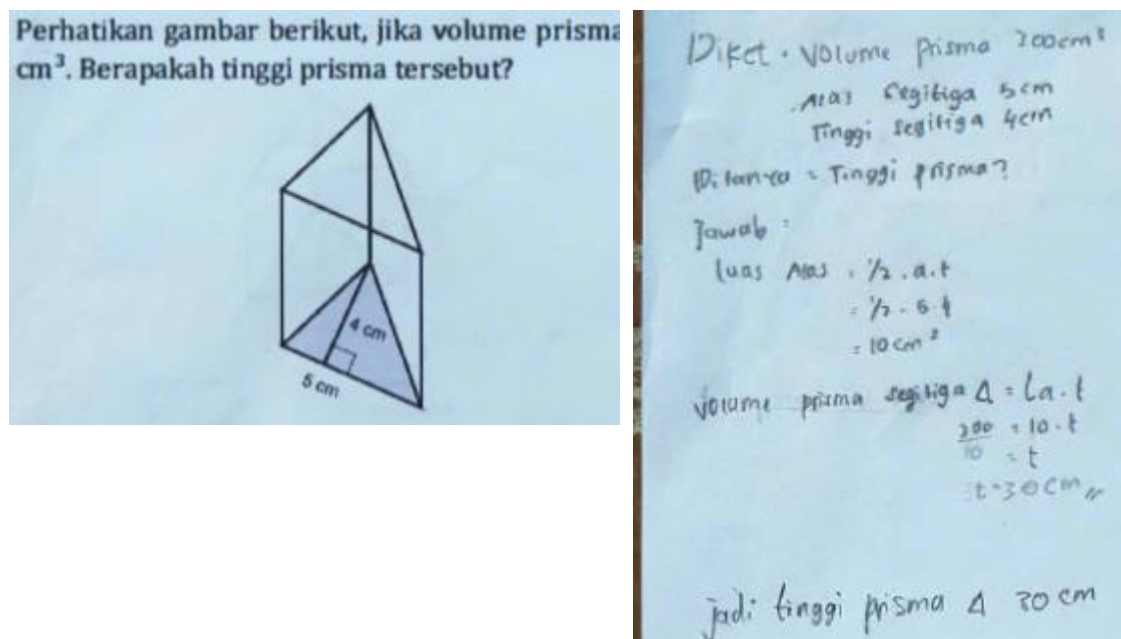 Perhatikan gambar berikut, jika volume prisma
cm³. Berapakah tinggi prisma tersebut?
4 cm
5 cm
Diket . Volume Prisma 300cm³
Alas Segitiga 5cm
Tinggi segitiga 4cm
Ditanya = Tinggi prisma?
Jawab :
Luas Alas = ½ . a . t
= ½ . 5 . 4
= 10 cm²
Volume prisma segitiga Δ = La . t
300 = 10 . t
10 = t
t = 30 cm //
jadi tinggi prisma Δ 30 cm